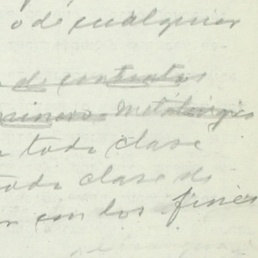 o de cualquier
de contratos
minero-metalúrgico
toda clase
toda clase de
con los fines